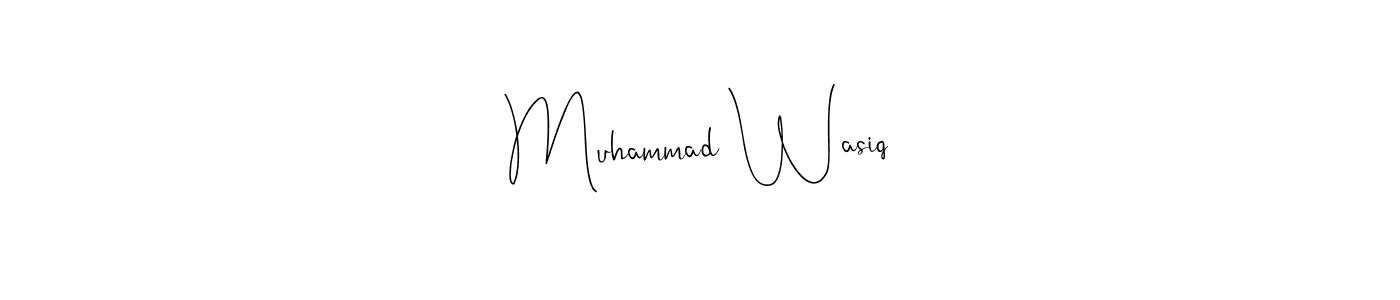 Muhammad Wasiq